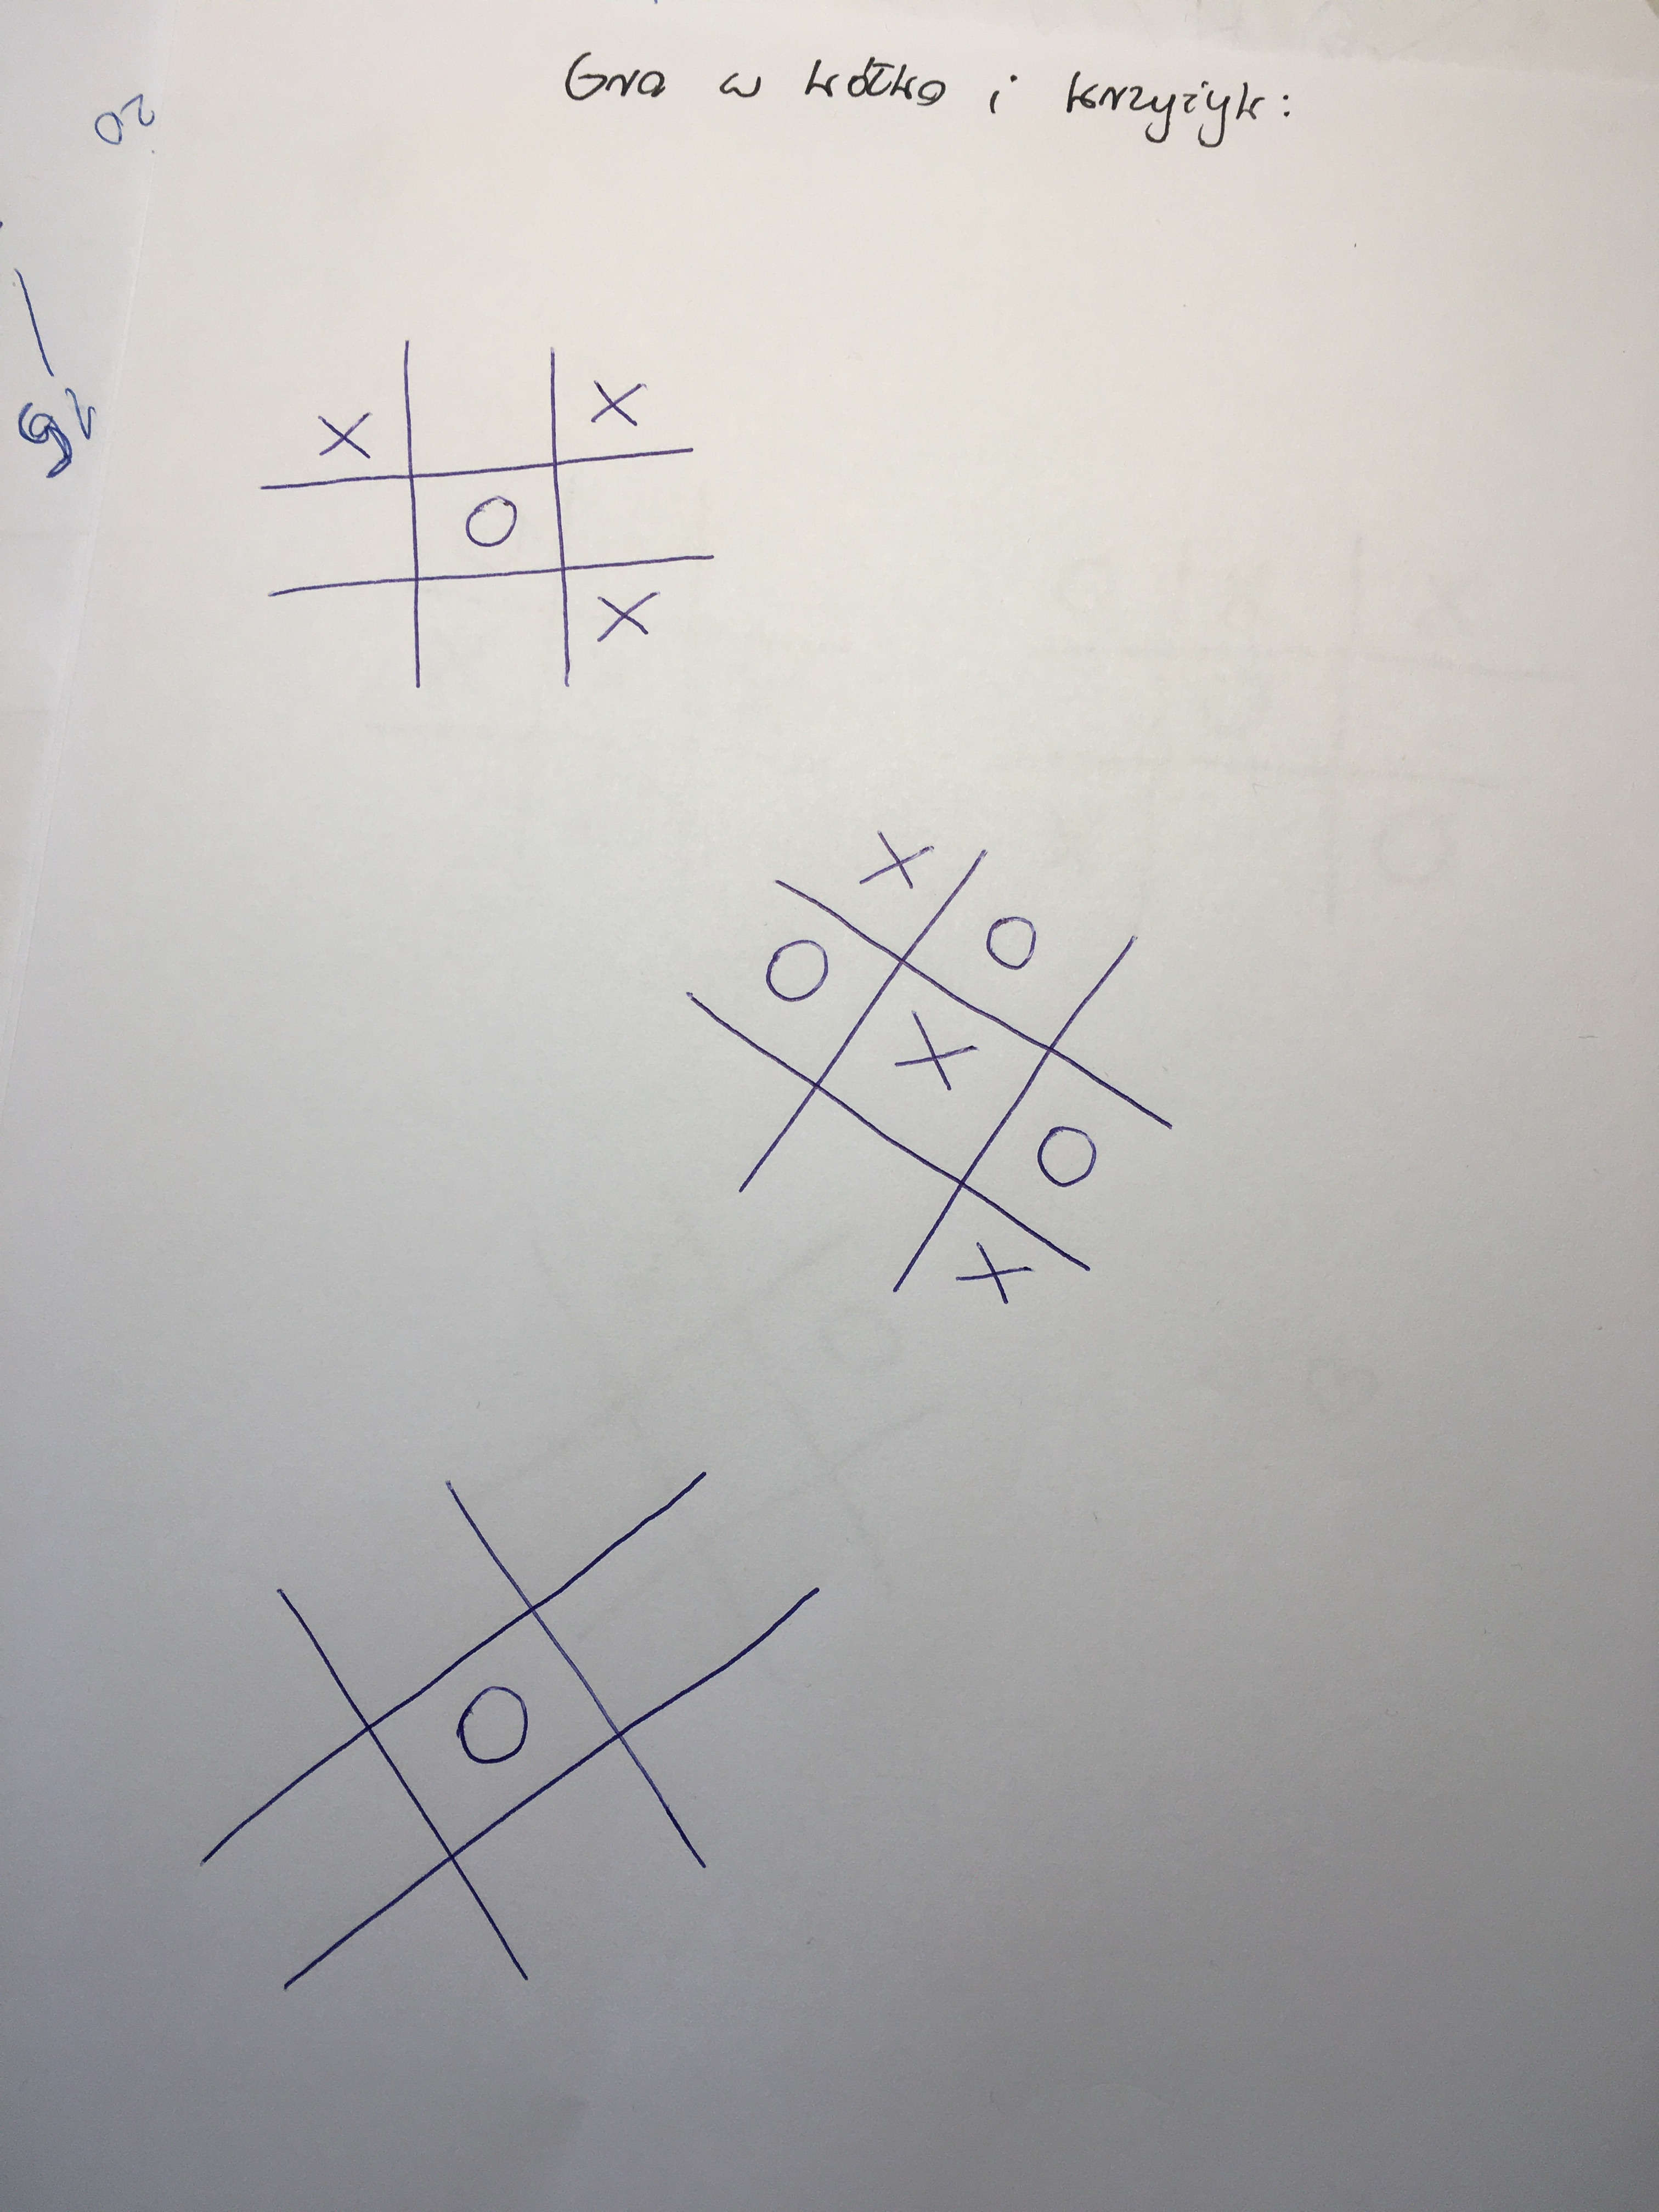 Gra w kółko i krzyżyk:
20
16
X X
O
X
X
O O
X
O
X
O